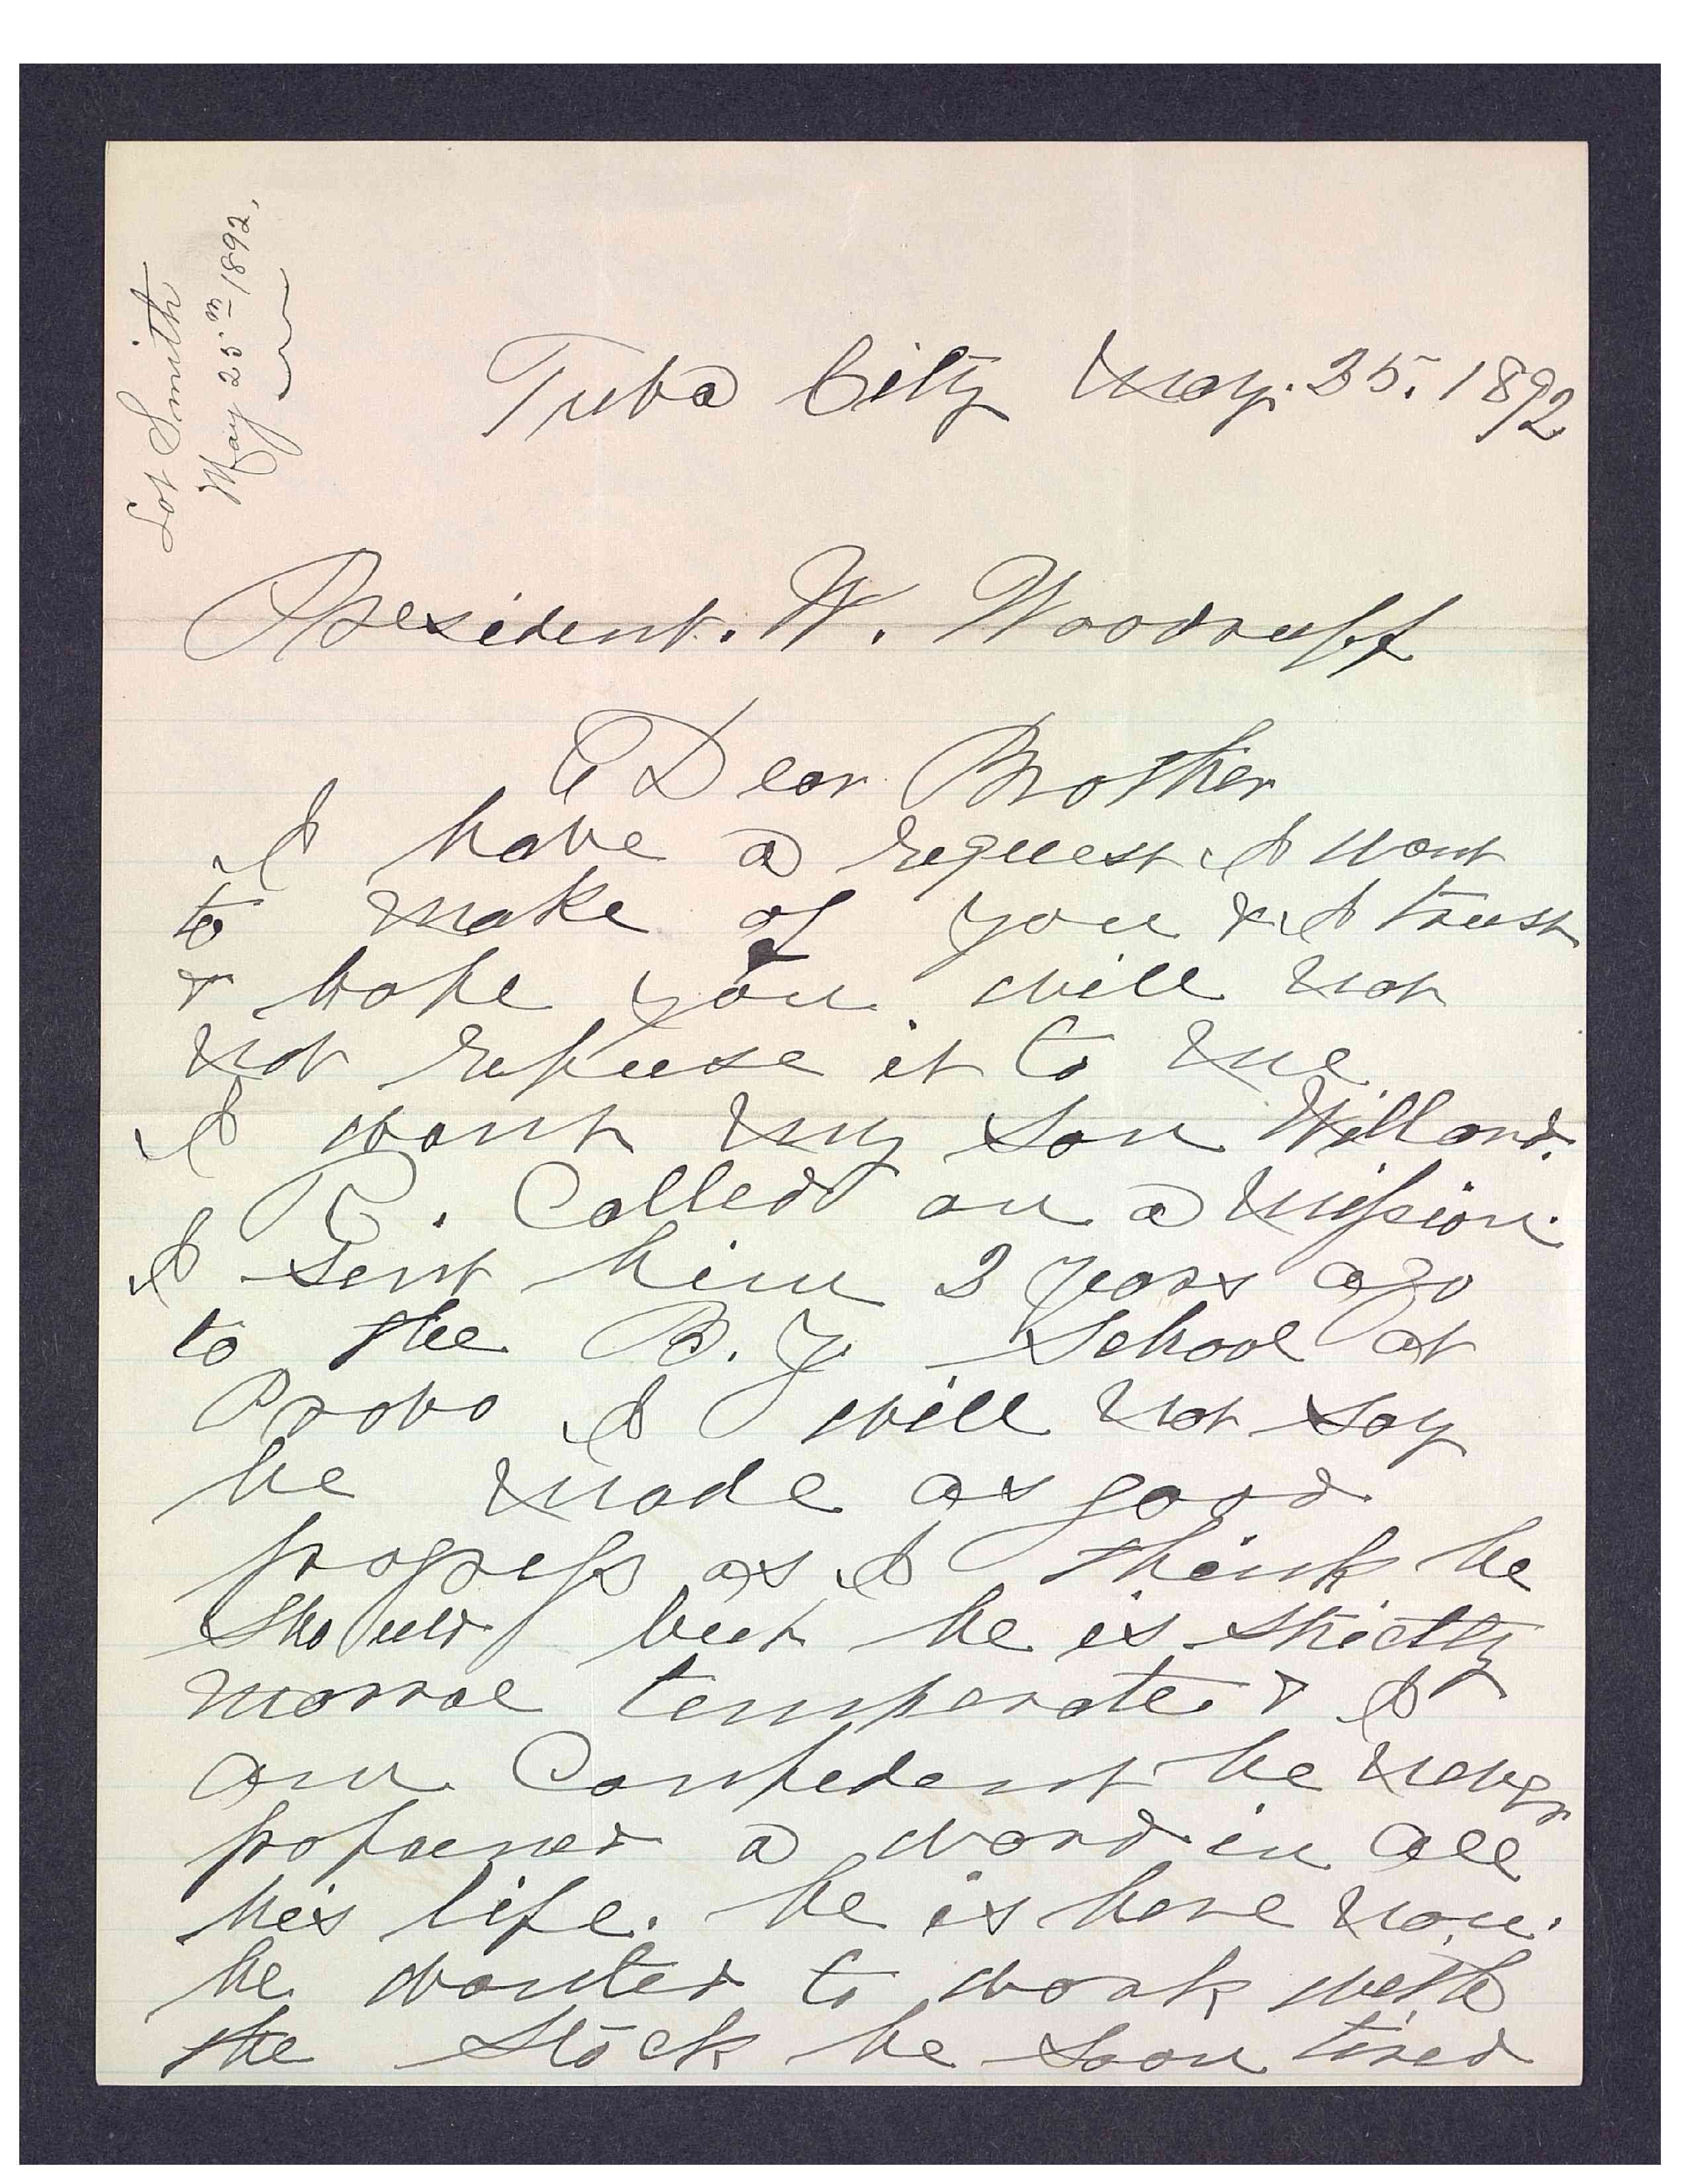 Lot Smith
May 25th 1892,
Tuba City May. 25. 1892
President. W. Woodruff
Dear Brother
I have a request I want
to make of you & I trust
& hope you will not
not refuse it to me
I want my son Willard.
R. Called on a mission.
I sent him 2 years ago
to the B. Y. School at
Provo I will not say
he made as good
progress as I think he
should but he is strictly
morral temperate. & I
am Confident he never
profaned a word in all
his life. he is here now.
he wanted to work with
the stock he soon tired